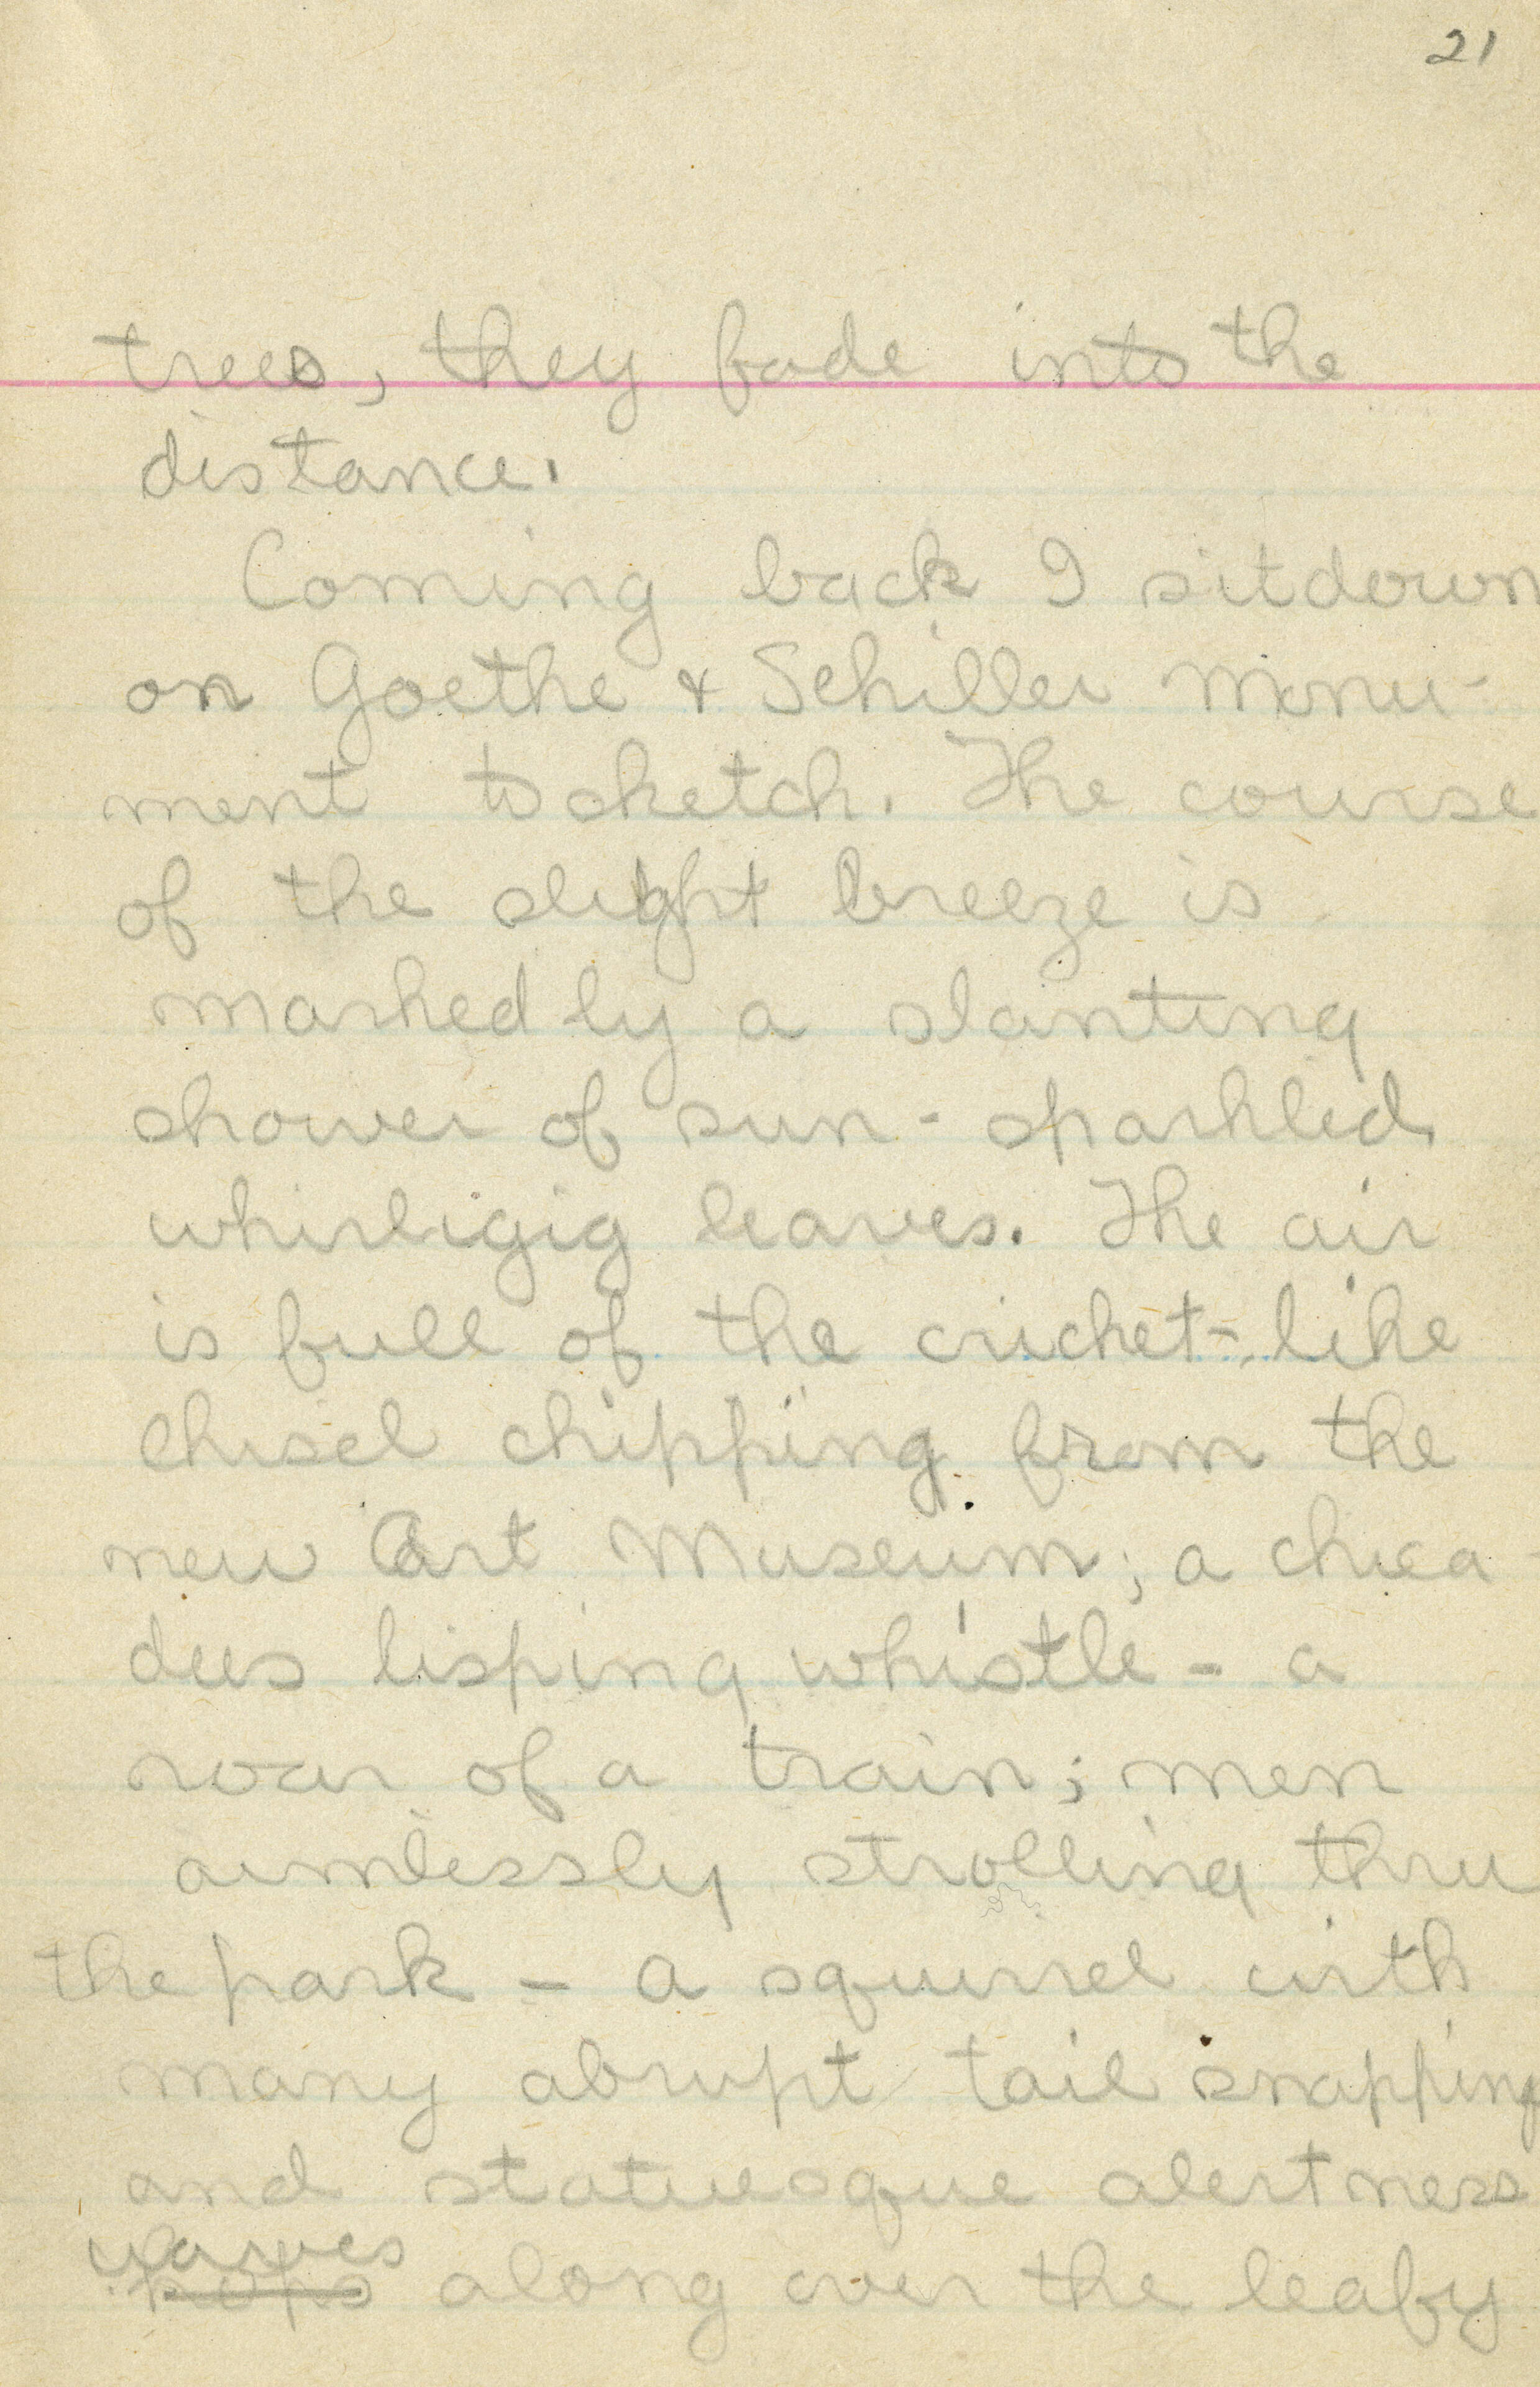 21
trees, they fade into the
distance.
Coming back I sit down
on Goethe & Schiller Monu-
ment to sketch. The course
of the slight breeze is
marked by a slanting
shower of sun-sparkled
whirligig leaves. The air
is full of the cricket-like
chisel chipping from the
new Art Museum; a chica
dees lisping whistle - a
roar of a train; men
aimlessly strolling thru
the park - a squirrel with
many abrupt tail snapping
and statuesque alertness
waves
hops along over the leafy